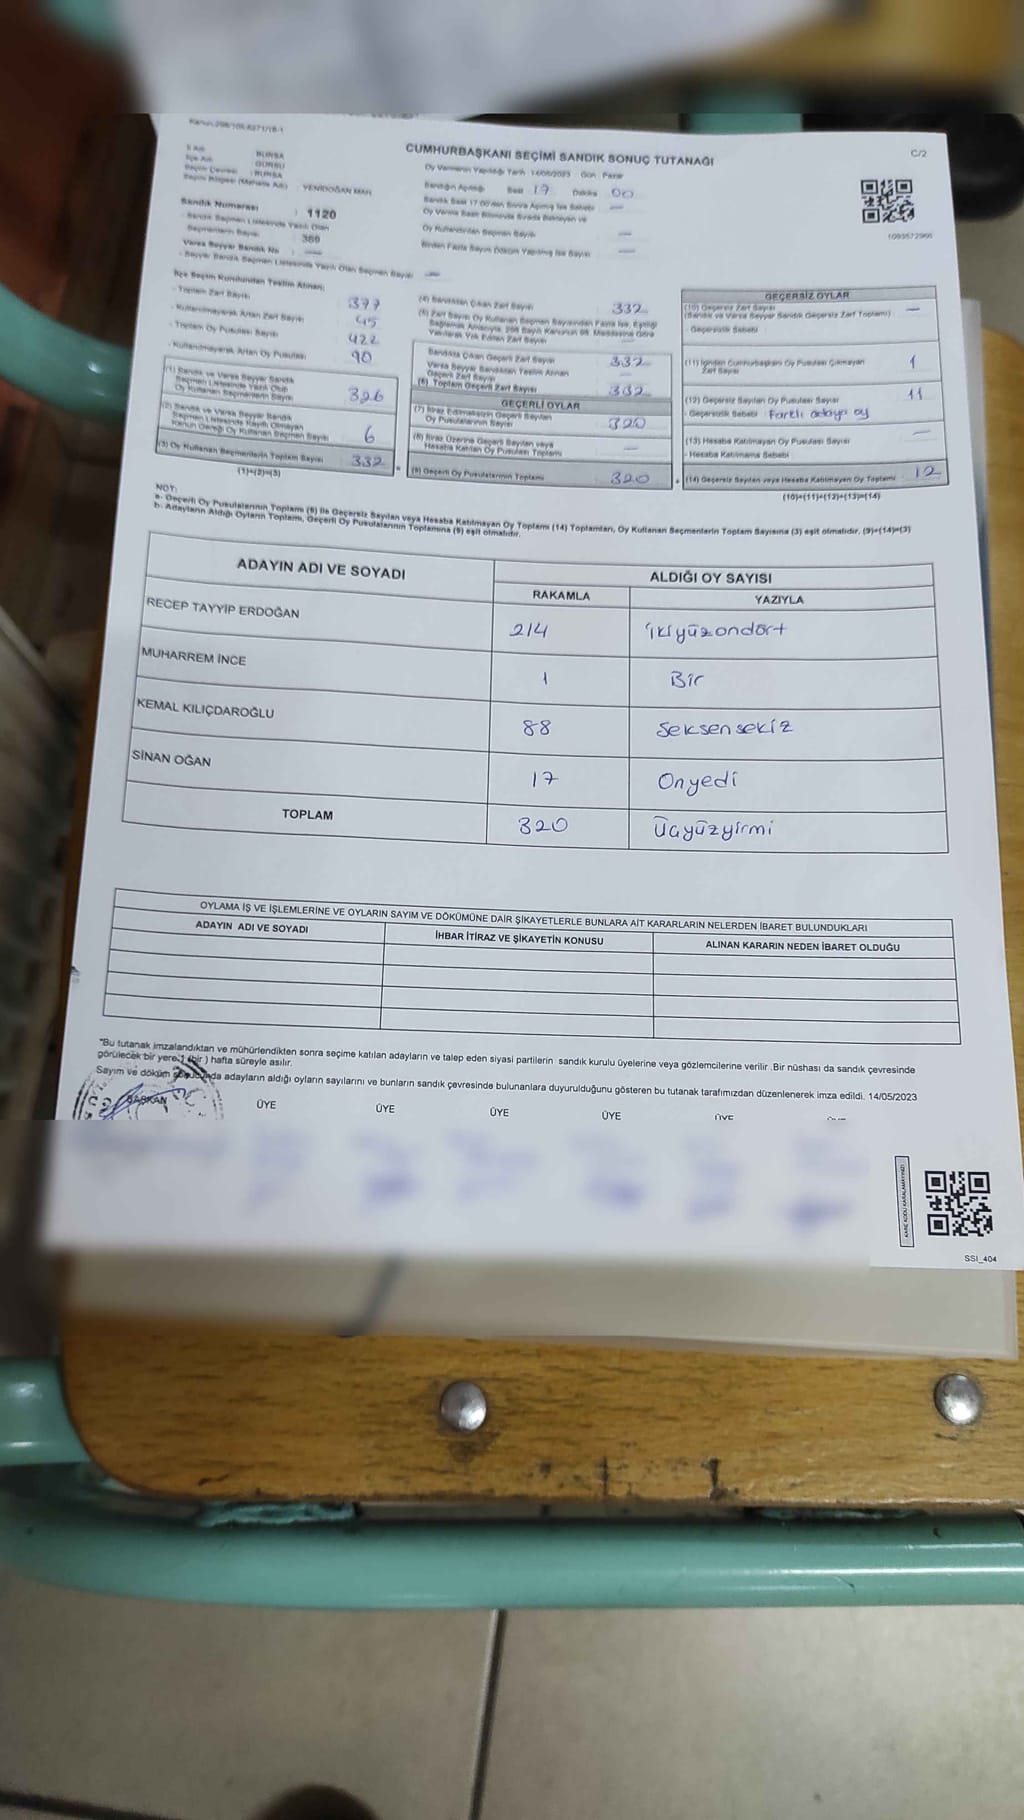 CUMHURBAŞKANI SEÇİMİ SANDIK SONUÇ TUTANAĞI
C/2
İl Adı : BURSA
İlçe Adı : GÜRSU
Seçim Çevresi : BURSA
Seçim Bölgesi (Mahalle Adı) : YENİDOĞAN MAH.
Oy Vermenin Yapıldığı Tarih : 14/05/2023 Gün : Pazar
Sandığın Açıldığı Saat 17 Dakika 00
Sandık Saat 17.00'den Sonra Açılmış İse Sebebi —
Oy Verme Saati Bitiminde Sırada Bekleyen ve
Oy Kullandırılan Seçmen Sayısı —
Birden Fazla Sayım Döküm Yapılmış İse Sayısı —
Sandık Numarası : 1120
- Sandık Seçmen Listesinde Yazılı Olan
Seçmenlerin Sayısı : 380
Varsa Seyyar Sandık No : —
- Seyyar Sandık Seçmen Listesinde Yazılı Olan Seçmen Sayısı —
İlçe Seçim Kurulundan Teslim Alınan;
- Toplam Zarf Sayısı 377
- Kullanılmayarak Artan Zarf Sayısı 45
- Toplam Oy Pusulası Sayısı 422
- Kullanılmayarak Artan Oy Pusulası 90
(1) Sandık ve Varsa Seyyar Sandık
Seçmen Listesinde Yazılı Olup
Oy Kullanan Seçmen Sayısı 326
(2) Sandık ve Varsa Seyyar Sandık
Seçmen Listesinde Kayıtlı Olmayan
Kanun Gereği Oy Kullanan Seçmen Sayısı 6
(3) Oy Kullanan Seçmenlerin Toplam Sayısı 332
(1)+(2)=(3)
(4) Sandıktan Çıkan Zarf Sayısı 332
(5) Zarf Sayısı Oy Kullanan Seçmen Sayısından Fazla İse, Eşitliği
Sağlamak Amacıyla, 298 Sayılı Kanunun 98. Maddesine Göre
Yakılarak Yok Edilen Zarf Sayısı —
Sandıkta Çıkan Geçerli Zarf Sayısı 332
Varsa Seyyar Sandıktan Teslim Alınan
Geçerli Zarf Sayısı —
(6) Toplam Geçerli Zarf Sayısı 332
GEÇERLİ OYLAR
(7) İtiraz Edilmeksizin Geçerli Sayılan
Oy Pusulalarının Sayısı 320
(8) İtiraz Üzerine Geçerli Sayılan veya
Hesaba Katılan Oy Pusulası Toplamı —
(9) Geçerli Oy Pusulalarının Toplamı 320
GEÇERSİZ OYLAR
(10) Geçersiz Zarf Sayısı
(Sandık ve Varsa Seyyar Sandık Geçersiz Zarf Toplamı) —
- Geçersizlik Sebebi
(11) İçinden Cumhurbaşkanı Oy Pusulası Çıkmayan
Zarf Sayısı 1
(12) Geçersiz Sayılan Oy Pusulası Sayısı 11
- Geçersizlik Sebebi Farklı adaya oy
(13) Hesaba Katılmayan Oy Pusulası Sayısı —
- Hesaba Katılmama Sebebi
(14) Geçersiz Sayılan veya Hesaba Katılmayan Oy Toplamı 12
(10)+(11)+(12)+(13)=(14)
NOT:
a- Geçerli Oy Pusulalarının Toplamı (9) ile Geçersiz Sayılan veya Hesaba Katılmayan Oy Toplamı (14) Toplamları, Oy Kullanan Seçmenlerin Toplam Sayısına (3) eşit olmalıdır. (9)+(14)=(3)
b- Adayların Aldığı Oyların Toplamı, Geçerli Oy Pusulalarının Toplamına (9) eşit olmalıdır.
ADAYIN ADI VE SOYADI
ALDIĞI OY SAYISI
RAKAMLA YAZIYLA
RECEP TAYYİP ERDOĞAN 214 ikiyüzondört
MUHARREM İNCE 1 Bir
KEMAL KILIÇDAROĞLU 88 Seksensekiz
SİNAN OĞAN 17 Onyedi
TOPLAM 320 Üçyüzyirmi
OYLAMA İŞ VE İŞLEMLERİNE VE OYLARIN SAYIM VE DÖKÜMÜNE DAİR ŞİKAYETLERLE BUNLARA AİT KARARLARIN NELERDEN İBARET BULUNDUKLARI
ADAYIN ADI VE SOYADI İHBAR İTİRAZ VE ŞİKAYETİN KONUSU ALINAN KARARIN NEDEN İBARET OLDUĞU
"Bu tutanak imzalandıktan ve mühürlendikten sonra seçime katılan adayların ve talep eden siyasi partilerin sandık kurulu üyelerine veya gözlemcilerine verilir .Bir nüshası da sandık çevresinde
görülecek bir yere 1 (bir ) hafta süreyle asılır.
Sayım ve döküm sonucunda adayların aldığı oyların sayılarını ve bunların sandık çevresinde bulunanlara duyurulduğunu gösteren bu tutanak tarafımızdan düzenlenerek imza edildi. 14/05/2023
BAŞKAN ÜYE ÜYE ÜYE ÜYE ÜYE ÜYE
KARE KODU KARALAMAYINIZ!
SSI_404